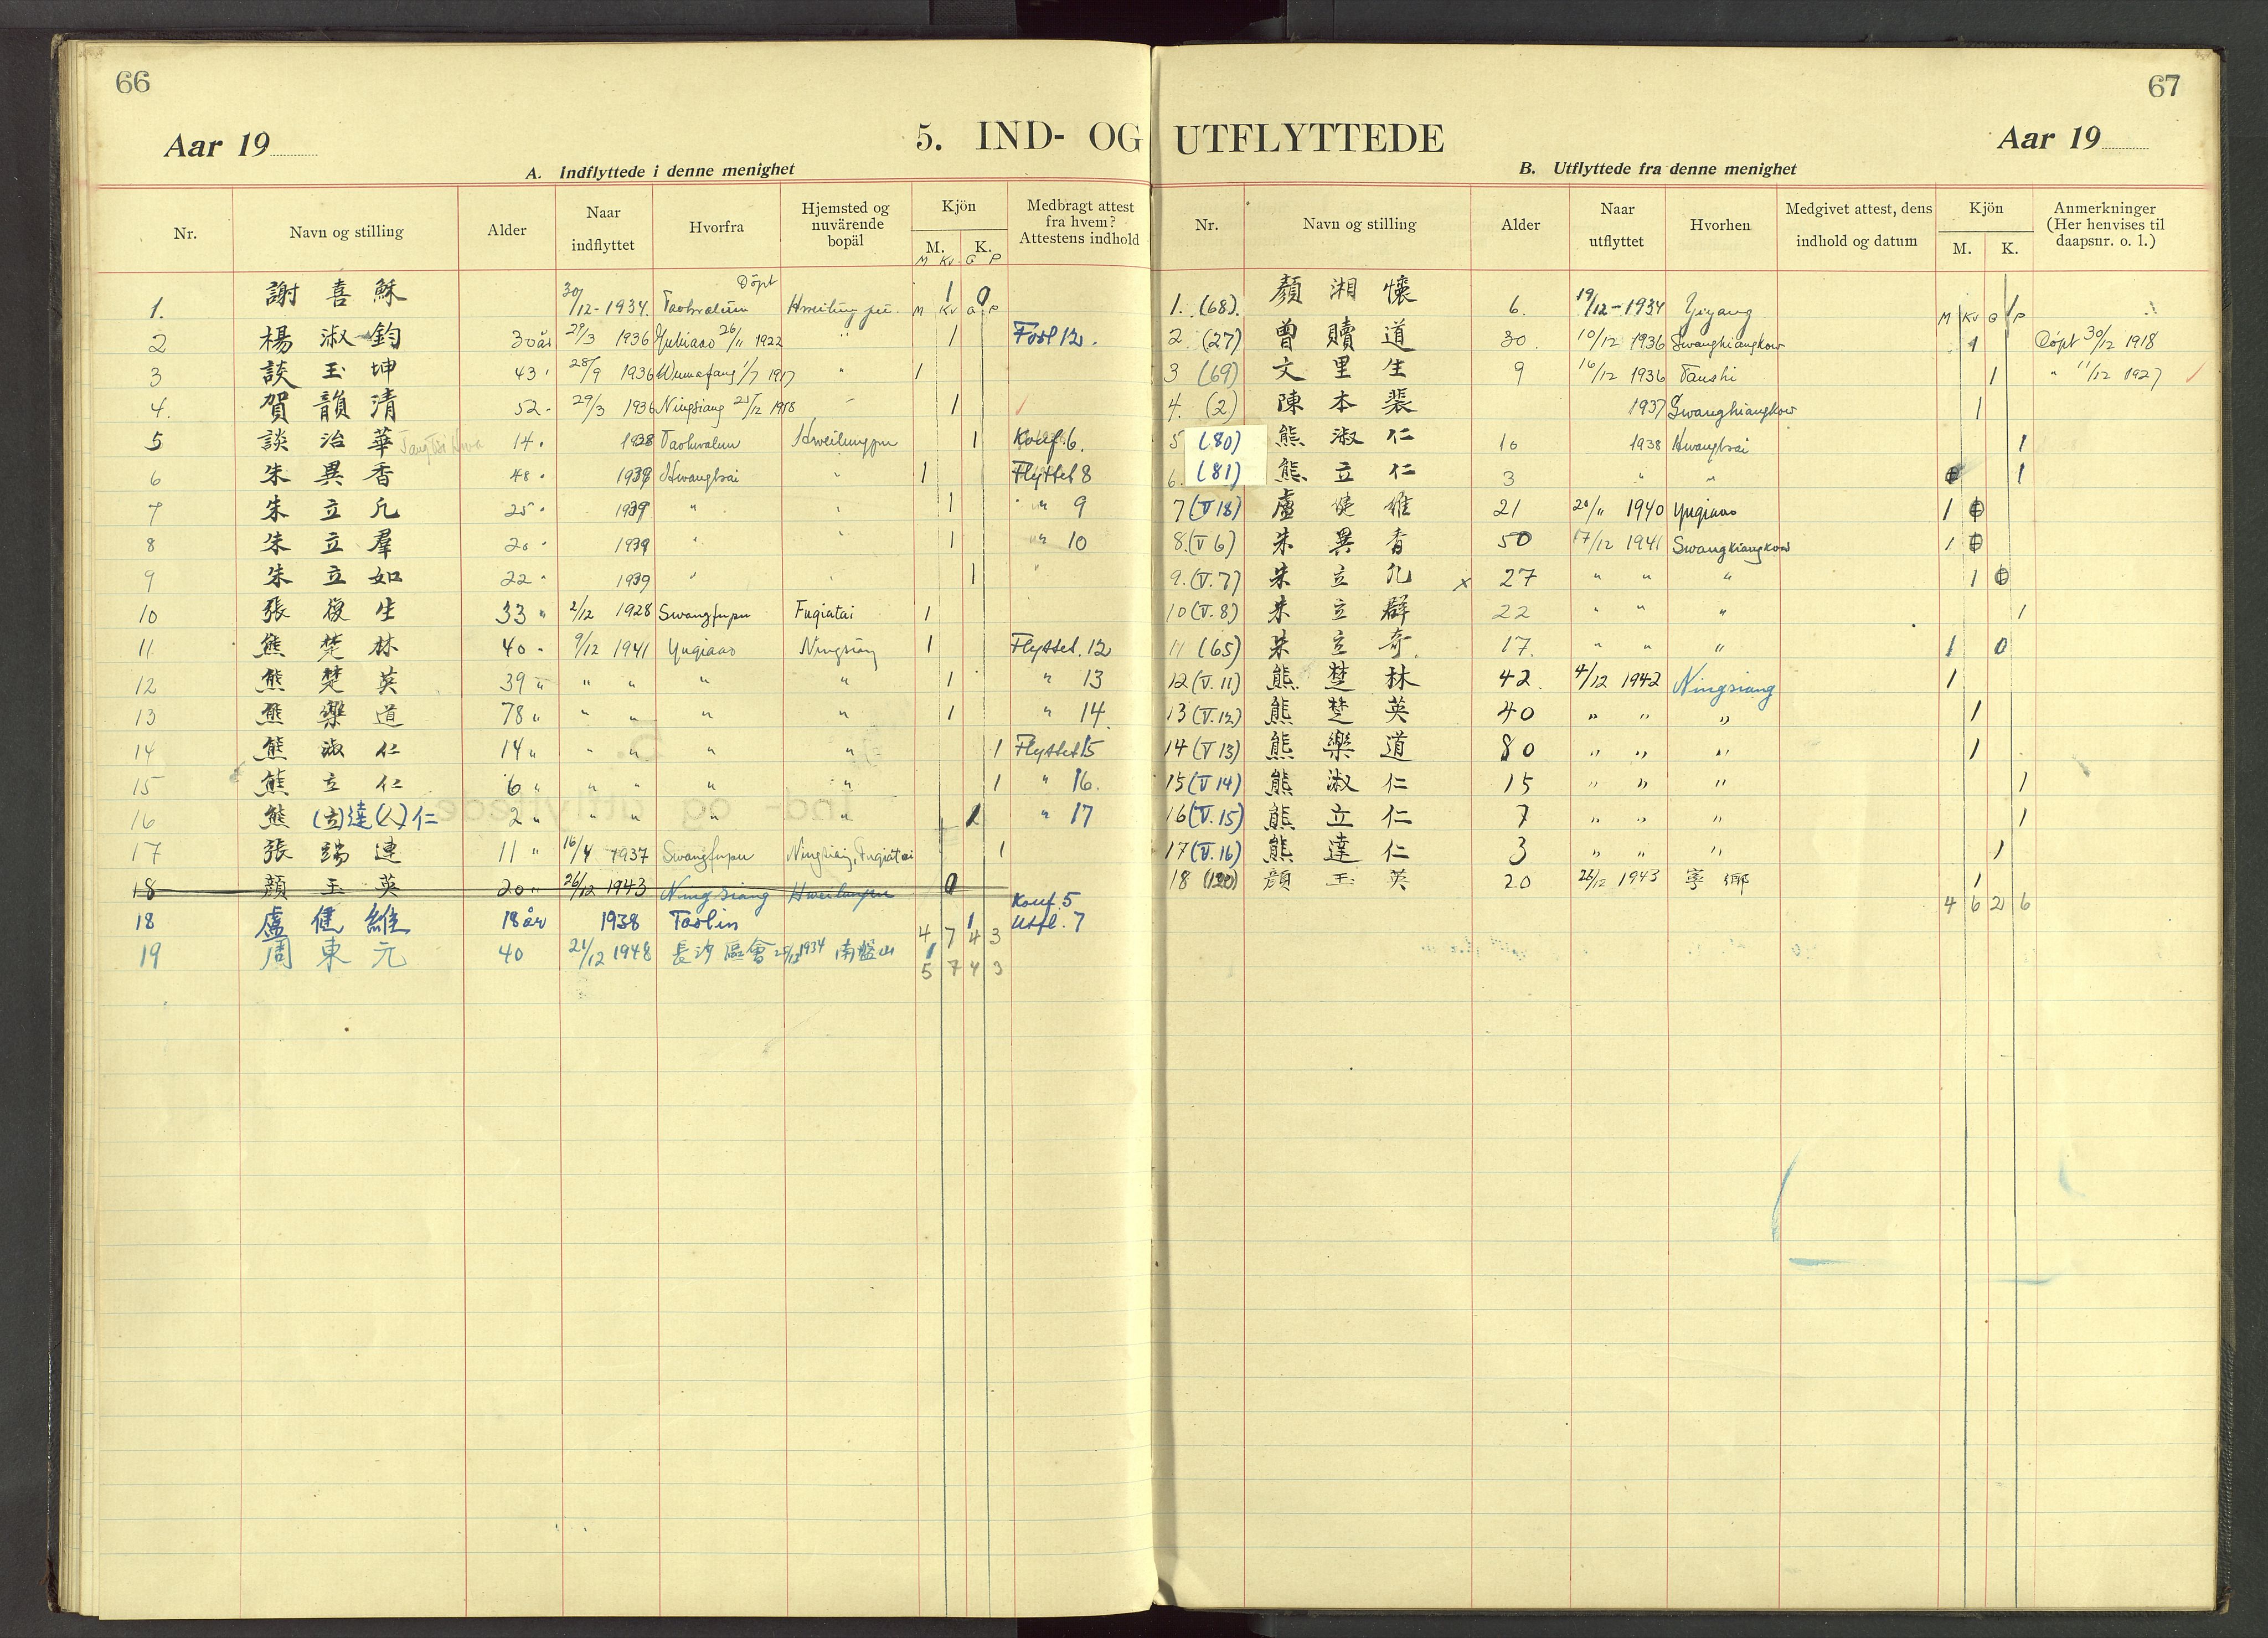 66
Aar 19
5. IND- OG
A. Indflyttede i denne menighet
Nr. Navn og stilling Alder Naar indflyttet Hvorfra Hjemsted og nuværende bopäl Kjön M. K. Medbragt attest fra hvem? Attestens indhold
M Kv G P
1. 謝喜穌 30/12-1934. Döpt Taohwalun Hweilung pu. M Kv G P 1 0
2 楊淑鈞 30 år 29/3 1936 26/11 1922 " 1
3 談玉坤 43 " 28/9 1936 1/7 1917 " 1
4. 賀韻清 52 " 29/3 1936 Ningsiang 25/12 1918 " 1
5 談治華 14 " 1938 Taohwalun Hweilungpu 1 Konf. 6.
6 朱異香 48 " 1939 Hwangtsai " 1 Flyttet 8
7 朱立凡 25 " 1939 " " 1 " 9
8 朱立羣 20 " 1939 " " 1 " 10
9 朱立如 22 " 1939 " " 1 "
10 張復生 33 " 2/12 1928 Swangfupu Fugiatai 1
11 熊楚林 40 " 9/12 1941 Yugiaao Ningsiang 1 Flyttet. 12
12 熊楚英 39 " " " " " 1 " 13
13 熊樂道 78 " " " " " 1 " 14
14 熊淑仁 14 " " " " " 1 Flyttet 15
15 熊立仁 6 " " " " " 1 " 16.
16 熊(立)達(人)仁 2 " " " " " 1 " 17
17 張端連 11 " 16/4 1937 Swangfupu Ningsiang, Fugiatai 1
18 顔玉英 20 " 26/12 1943 Ningsiang Hweilungpu 0
18 盧健維 18 år 1938 Taolin 1 Konf. 5 Utfl. 7
4 7 4 3
19 周東元 40 21/12 1948 長沙區會 25/12 1934 南盤山 1
5 7 4 3
67
UTFLYTTEDE
Aar 19
B. Utflyttede fra denne menighet
Nr. Navn og stilling Alder Naar utflyttet Hvorhen Medgivet attest, dens indhold og datum Kjön M. K. Anmerkninger (Her henvises til daapsnr. o. l.)
1. (68). 顏湘懷 6. 19/12-1934 Yiyang M Kv G P 1
2. (27) 曾贖道 30. 10/12 1936 Swanghiangkow 1 Döpt 30/12 1918
3 (69) 文里生 9 16/12 1936 Taushi 1 " 11/12 1927
4. (2) 陳本裴 1937 Swanghiangkow 1
5 (80) 熊淑仁 10 1938 Hwangtsai 1
6. (81) 熊立仁 3 " " 1
7 (V 18) 盧健維 21 20/11 1940 Yugiaao 1
8. (V 6) 朱異香 50 17/12 1941 Swangkiangkow 1
9. (V. 7) 朱立凡 x 27 " " " 1
10 (V. 8) 朱立群 22 " " " 1
11 (65) 朱立奇 17. " " " 1 0
12 (V. 11) 熊楚林 42. 4/12 1942 Ningsiang 1
13 (V. 12) 熊楚英 40 " " " 1
14 (V 13) 熊樂道 80 " " " 1
15 (V 14) 熊淑仁 15 " " " 1
16 (V. 15) 熊立仁 7 " " " 1
17 (V. 16) 熊達仁 3 " " " 1
18 (120) 顔玉英 20 26/12 1943 寧鄉 1
4 6 2 6